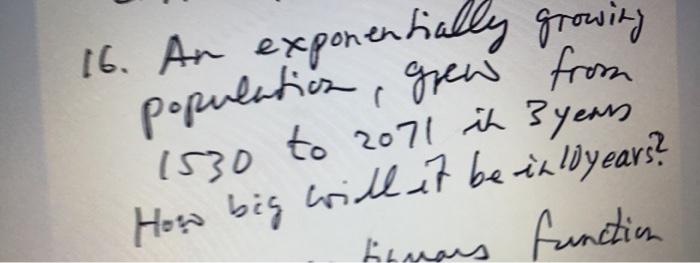 16. An exponentially growing
population, grew from
1530 to 2071 in 3 years
How big will it be in 10 years?
function